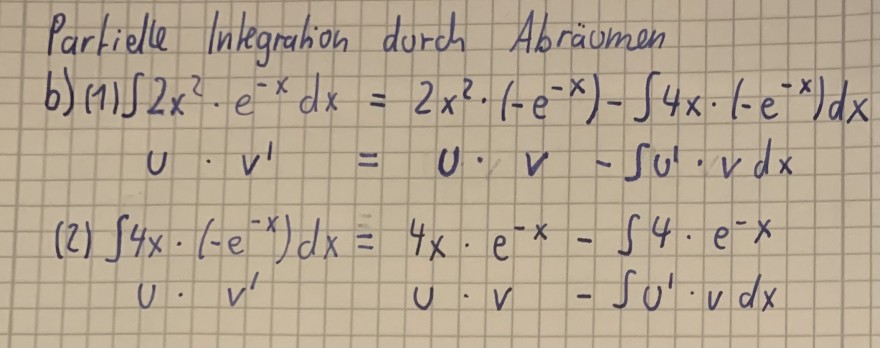 Partielle Integration durch Abräumen
b) (1) ∫ 2x² · e⁻ˣ dx = 2x² · (-e⁻ˣ) - ∫ 4x · (-e⁻ˣ) dx
U · V' = U · V - ∫ U' · V dx
(2) ∫ 4x · (-e⁻ˣ) dx = 4x · e⁻ˣ - ∫ 4 · e⁻ˣ
U · V' U · V - ∫ U' · V dx